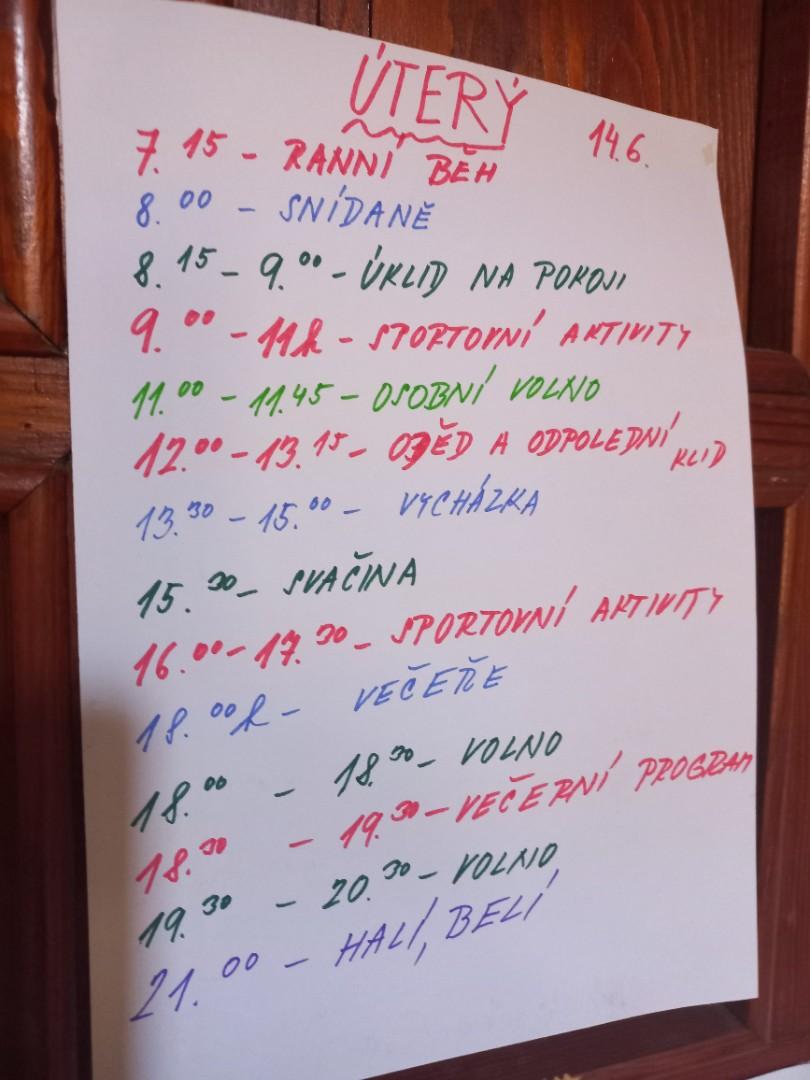 ÚTERÝ 14.6.
7.15 - RANNÍ BĚH
8.00 - SNÍDANĚ
8.15 - 9.00 - ÚKLID NA POKOJI
9.00 - 11h - SPORTOVNÍ AKTIVITY
11.00 - 11.45 - OSOBNÍ VOLNO
12.00 - 13.15 - OBĚD A ODPOLEDNÍ KLID
13.30 - 15.00 - VYCHÁZKA
15.30 - SVAČINA
16.00 - 17.30 - SPORTOVNÍ AKTIVITY
18.00h - VEČEŘE
18.00 - 18.30 - VOLNO
18.30 - 19.30 - VEČERNÍ PROGRAM
19.30 - 20.30 - VOLNO
21.00 - HALÍ, BELÍ